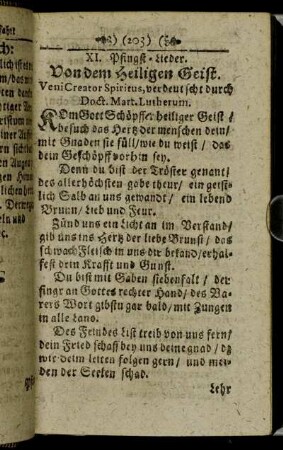 ) (203) (
XI. Pfingst-Lieder.
Von dem Heiligen Geist.
Veni Creator Spiritus, verdeutscht durch
Doct. Mart. Lutherum.
KOm Gott Schöpffer heiliger Geist /
besuch das Hertz der menschen dein /
mit Gnaden sie füll / wie du weist / das
dein Geschöpff vorhin sey.
Denn du bist der Tröster genant /
des allerhöchsten gabe theur / ein geist-
lich Salb an uns gewandt / ein lebend
Brunn / Lieb und Feur.
Zünd uns ein Licht an im Verstand /
gib uns ins Hertz der liebe Brunst / das
schwach Fleisch in uns dir bekand / erhal-
fest dein Krafft und Gunst.
Du bist mit Gaben siebenfalt / der
fingr an Gottes rechter Hand / des Va-
ters Wort gibstu gar bald / mit Zungen
in alle Land.
Des Feindes List treib von uns fern /
dein Fried schaff bey uns deine gnad / dz
wir deim leiten folgen gern / und mei-
den der Seelen schad.
Lehr